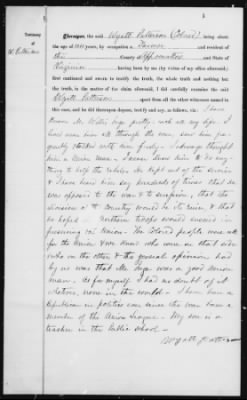 3
Testimony
of
W. Patterson
Thereupon, the said Wyatt Patterson (Colored) being above
the age of years, by occupation a Farmer and resident of
the County of Appomattox, and State of
Virginia having been by me (by virtue of my office aforesaid)
first cautioned and sworn to testify the truth, the whole truth and nothing but
the truth, in the matter of said claim aforesaid, I did carefully examine the said
Wyatt Patterson apart from all the other witnesses named in
this case, and he did thereupon depose, testify and say, as follows, viz: I have
known Mr. pretty well all my life. I
lived near him all through the war, saw him
quite and talked with him freely. I always thought
him a Union man. I never knew him to do any
thing to help the rebels. He kept out of the service
& I have heard him say hundreds of times that he
was opposed to the war & to secession, that the
division of the Country would be its ruin & that
he hoped Northern troops would succeed in
preserving the Union. The Colored people were all
for the Union & we knew who were on that side
who on the other & the general opinion had
by us was that Mr. was a good Union
man. As for myself I had no doubt of it
whatever, none in the world. I have been a
Republican in politics ever since the war, been a
member of the Union League. My son is a
teacher in the Public School.
Wyatt Patterson